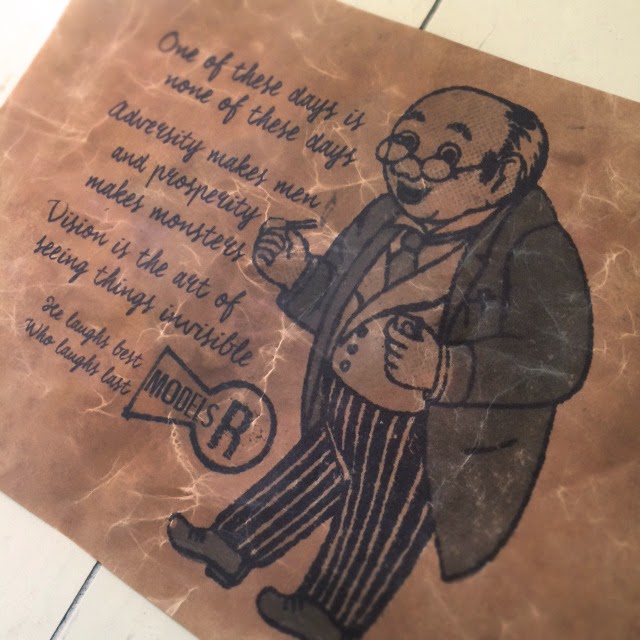 One of these days is
none of these days
Adversity makes men
and prosperity
makes monsters
Vision is the art of
seeing things invisible
He laughs best
Who laughs last
MODELS R